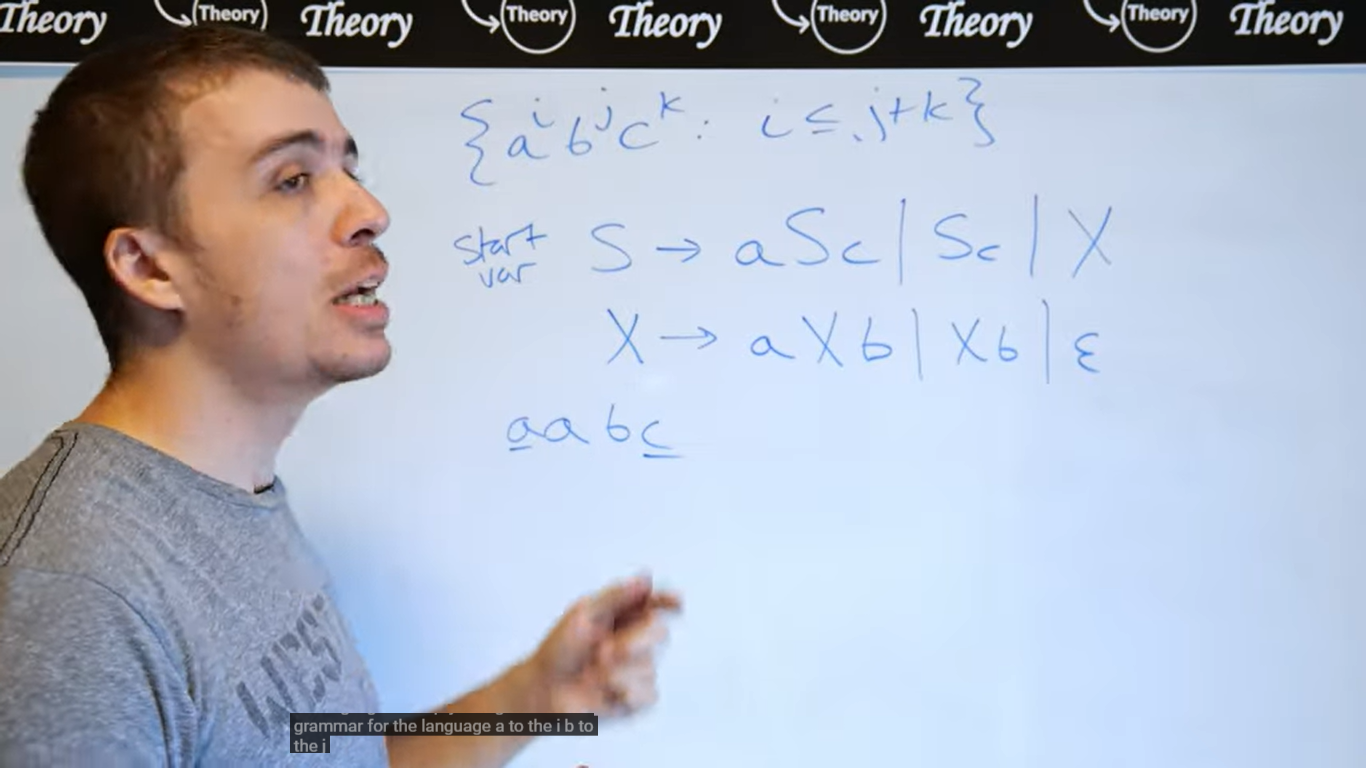 Theory Theory Theory Theory Theory Theory Theory Theory Theory
{aⁱbʲcᵏ: i≤j+k}
start var S → aSc | Sc | X
X → aXb | Xb | ε
aabc
WEST
grammar for the language a to the i b to
the j